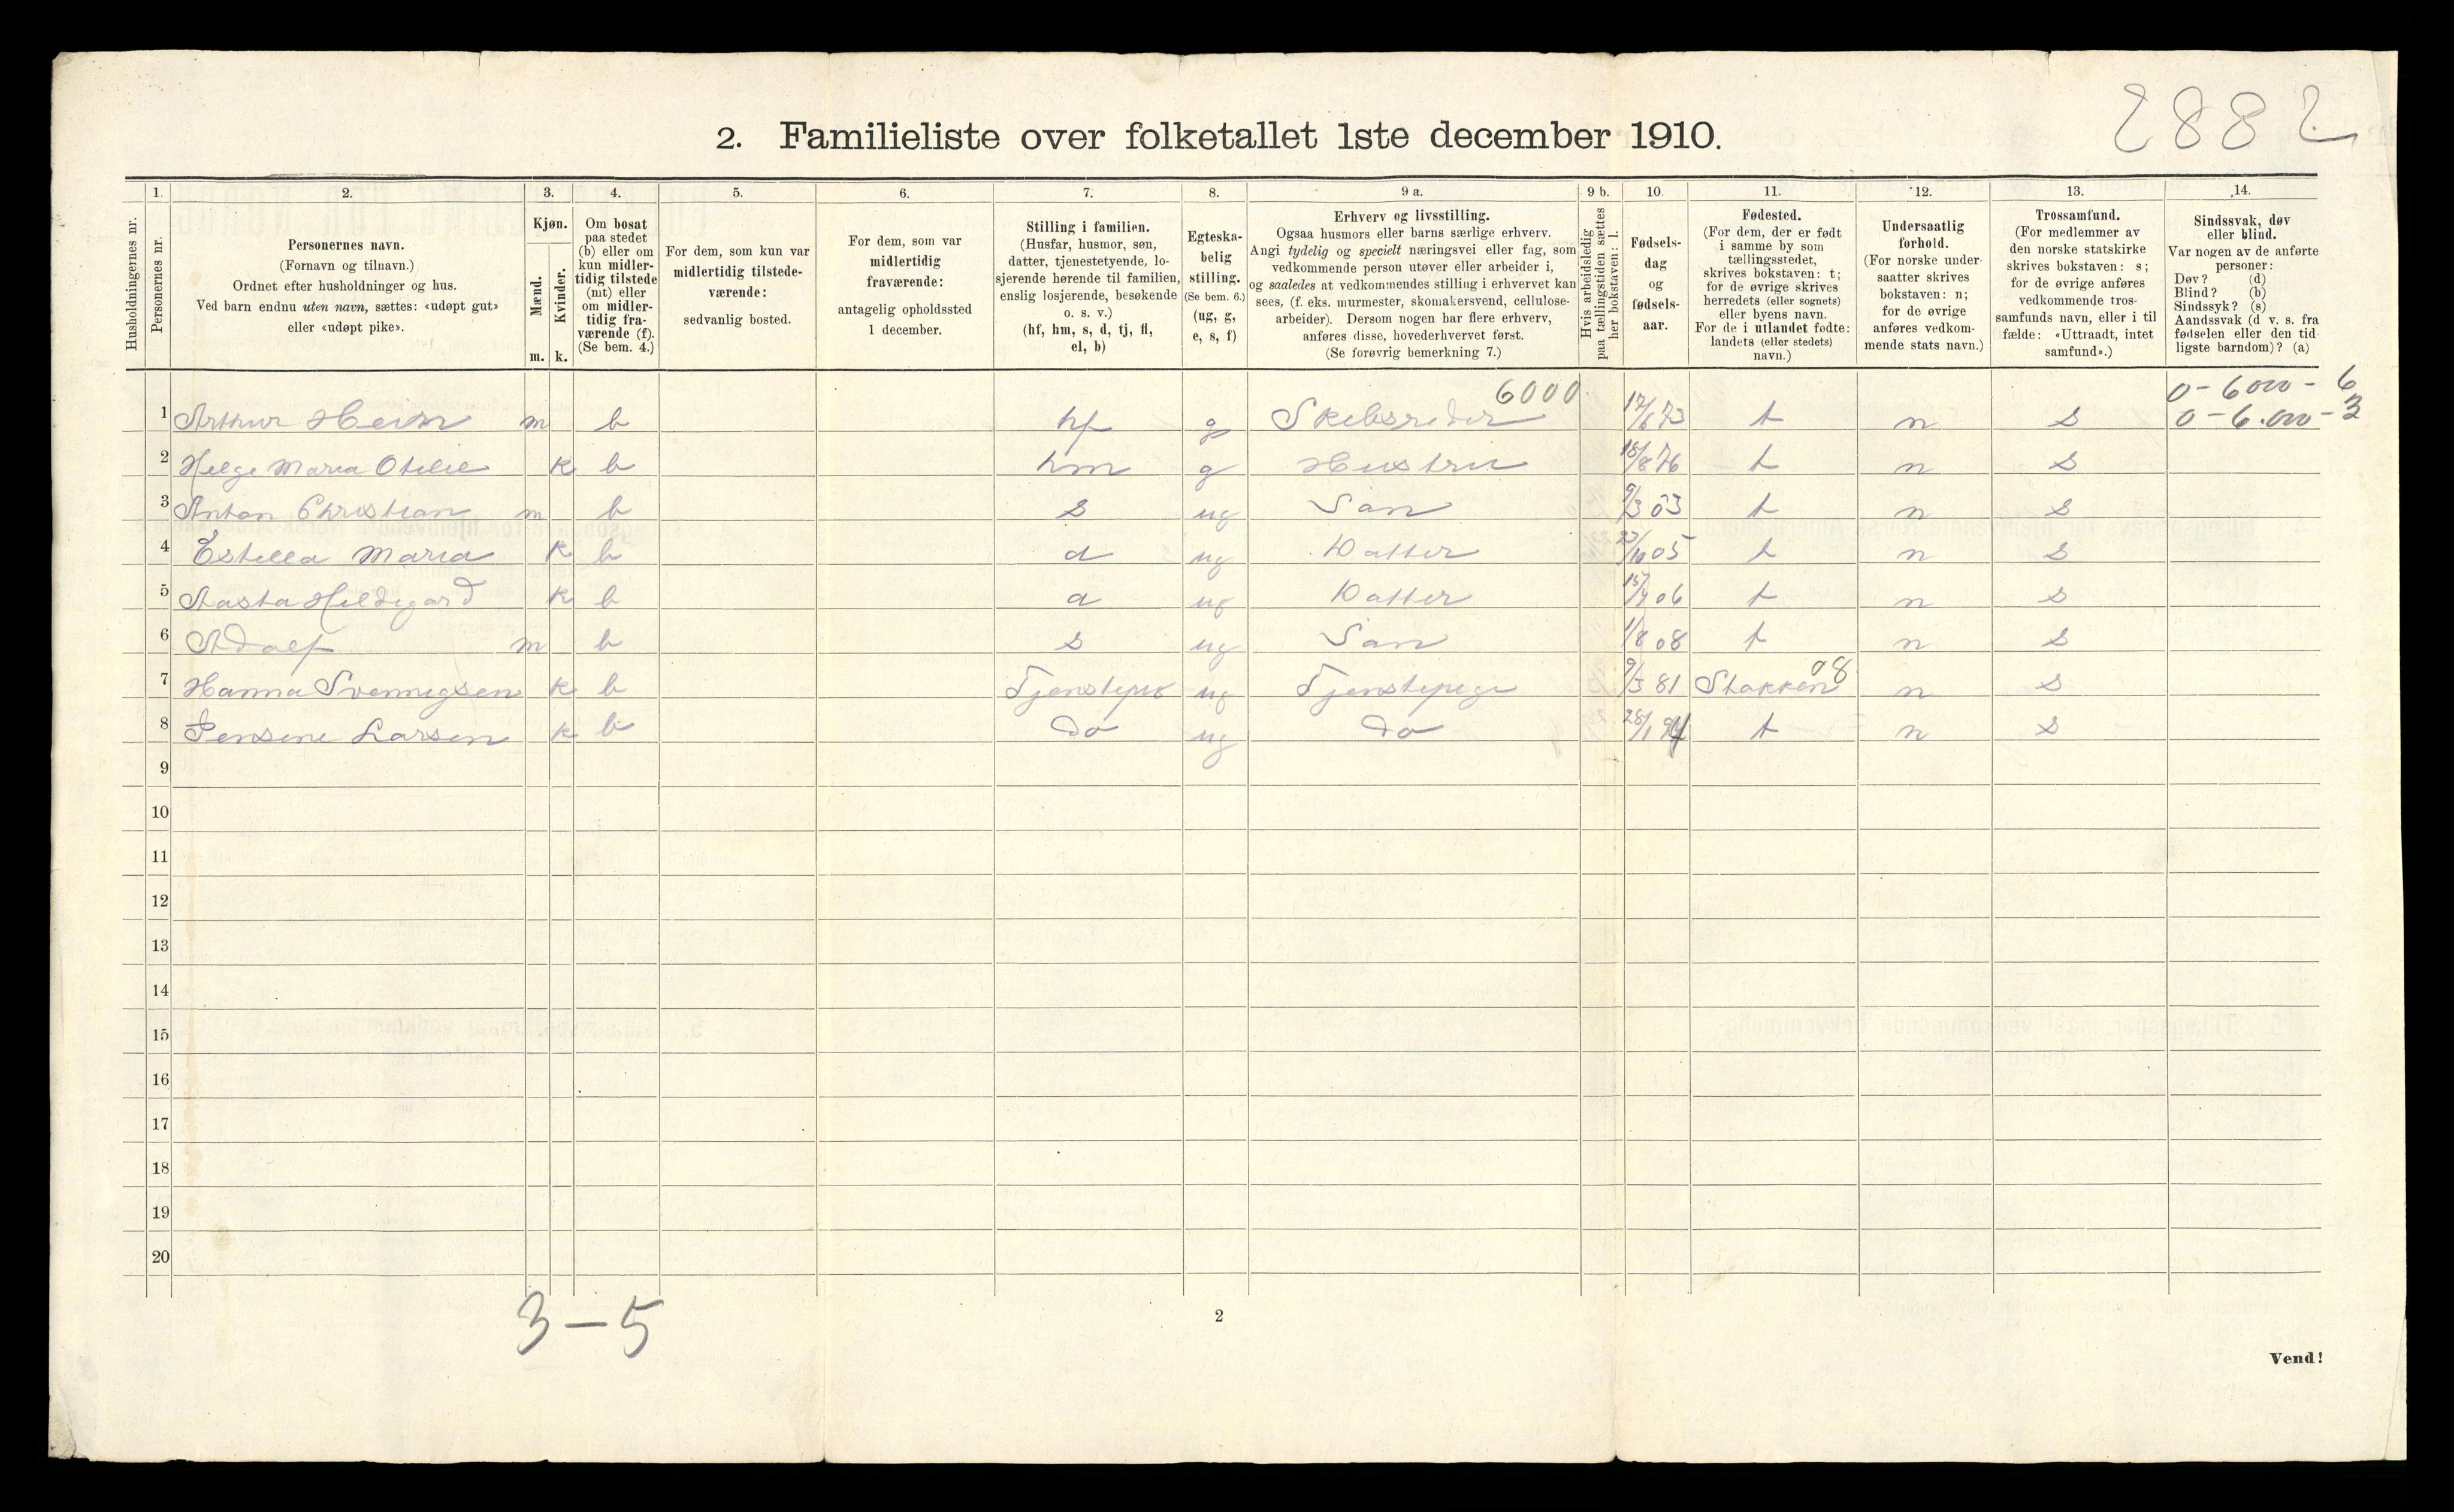 2882
2. Familieliste over folketallet 1ste december 1910.
1. 2. 3. 4. 5. 6. 7. 8. 9 a. 9 b. 10. 11. 12. 13. 14.
Husholdningernes nr.
Personernes nr.
Personernes navn.
(Fornavn og tilnavn.)
Ordnet efter husholdninger og hus.
Ved barn endnu uten navn, sættes: «udøpt gut»
eller «udøpt pike».
Kjøn.
Mænd.
Kvinder.
m. k.
Om bosat
paa stedet
(b) eller om
kun midler-
tidig tilstede
(mt) eller
om midler-
tidig fra-
værende (f).
(Se bem. 4.)
For dem, som kun var
midlertidig tilstede-
værende:
sedvanlig bosted.
For dem, som var
midlertidig
fraværende:
antagelig opholdssted
1 december.
Stilling i familien.
(Husfar, husmor, søn,
datter, tjenestetyende, lo-
sjerende hørende til familien,
enslig losjerende, besøkende
o. s. v.)
(hf, hm, s, d, tj, fl,
el, b)
Egteska-
belig
stilling.
(Se bem. 6.)
(ug, g,
e, s, f)
Erhverv og livsstilling.
Ogsaa husmors eller barns særlige erhverv.
Angi tydelig og specielt næringsvei eller fag, som
vedkommende person utøver eller arbeider i,
og saaledes at vedkommendes stilling i erhvervet kan
sees, (f. eks. murmester, skomakersvend, cellulose-
arbeider). Dersom nogen har flere erhverv,
anføres disse, hovederhvervet først.
(Se forøvrig bemerkning 7.)
Hvis arbeidsledig
paa tællingstiden sættes
her bokstaven: l.
Fødsels-
dag
og
fødsels-
aar.
Fødested.
(For dem, der er født
i samme by som
tællingsstedet,
skrives bokstaven: t;
for de øvrige skrives
herredets (eller sognets)
eller byens navn.
For de i utlandet fødte:
landets (eller stedets)
navn.)
Undersaatlig
forhold.
(For norske under-
saatter skrives
bokstaven: n;
for de øvrige
anføres vedkom-
mende stats navn.)
Trossamfund.
(For medlemmer av
den norske statskirke
skrives bokstaven: s;
for de øvrige anføres
vedkommende tros-
samfunds navn, eller i til
fælde: «Uttraadt, intet
samfund».)
Sindssvak, døv
eller blind.
Var nogen av de anførte
personer:
Døv? (d)
Blind? (b)
Sindssyk? (s)
Aandssvak (d v. s. fra
fødselen eller den tid-
ligste barndom)? (a)
6000 0-6000-6
1 Arthur m b hf g Skibsreder 17/6 73 t n s 0-6.000-3
2 Helge Maria Otilie k b hm g Hustru 18/8 76 t n s
3 Anton Christian m b s ug Søn 9/3 03 t n s
4 Estella Maria k b d ug Datter 23/10 05 t n s
5 Aasta Hildegard k b d ug Datter 06 t n s
6 Adolf m b s ug Søn 1/8 08 t n s
7 Hanna Svennigsen k b ug Tjenstepige 9/3 81 Stokken 08 n s
8 Jensine Larsen k b do ug do 28/1 94 t n s
9
10
11
12
13
14
15
16
17
18
19
20
3-5
2
Vend!